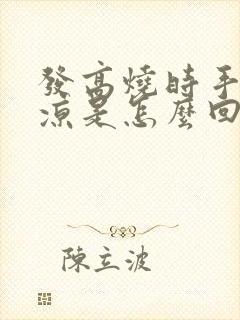 發高燒時手
凉是怎麼回
陳立波